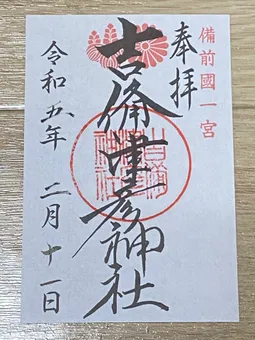 備前國一宮
奉拝
吉備津彦神社
令和五年 二月十一日